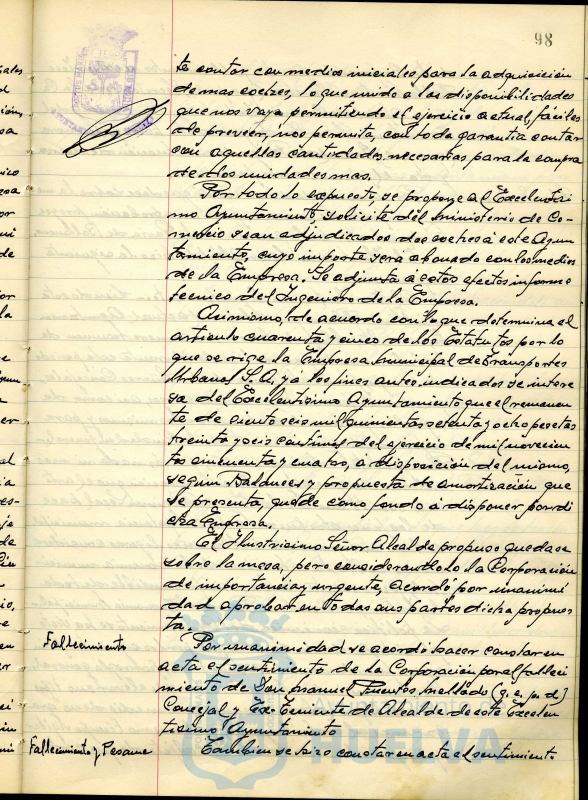 98
te contar con medios iniciales para la adquisición
de mas coches, lo que unido a las disponibilidades
que nos vaya permitiendo el ejercicio actual, fáciles
de preveer, nos permita, con toda garantia contar
con aquellas cantidades necesarias para la compra
de dos unidades mas.
Por todo lo expuesto, se propone al Excelentisi
mo Ayuntamiento, solicite del Ministerio de Co-
mercio sean adjudicados dos coches á este Ayun
tamiento, cuyo importe será abonado con los medios
de la Empresa. Se adjunta á estos efectos informe
tecnico del Ingeniero de la Empresa.
Asimismo, de acuerdo con lo que determina el
articulo cuarenta y cinco de los Estatutos por lo
que se rige la Empresa Municipal de Transportes
Urbanos S.A. y á los fines antes indicados se intere
sa del Excelentisimo Ayuntamiento que el remanen
te de ciento seis mil quinientas setenta y ocho pesetas
treinta y seis céntimos del ejercicio de mil novecien
tos cincuenta y cuatro, á disposición del mismo,
según Balances y propuesta de amortización que
se presenta, quede como fondo á disponer por di
cha Empresa.
El Ilustrisimo Señor Alcalde propuso quedase
sobre la mesa, pero considerandolo la Corporación
de importancia y urgente, acordó por unanimi
dad aprobar en todas sus partes dicha propues
ta.
Fallecimiento
Por unanimidad se acordó hacer constar en
acta el sentimiento de la Corporación por al falleci
miento de Don Manuel Fuentes Mellado (q. e. p. d.)
Concejal y Ex-Teniente de Alcalde de este Excelen
tisimo Ayuntamiento
Fallecimiento y Pesame
Tambien se hizo constar en acta el sentimiento
HUELVA